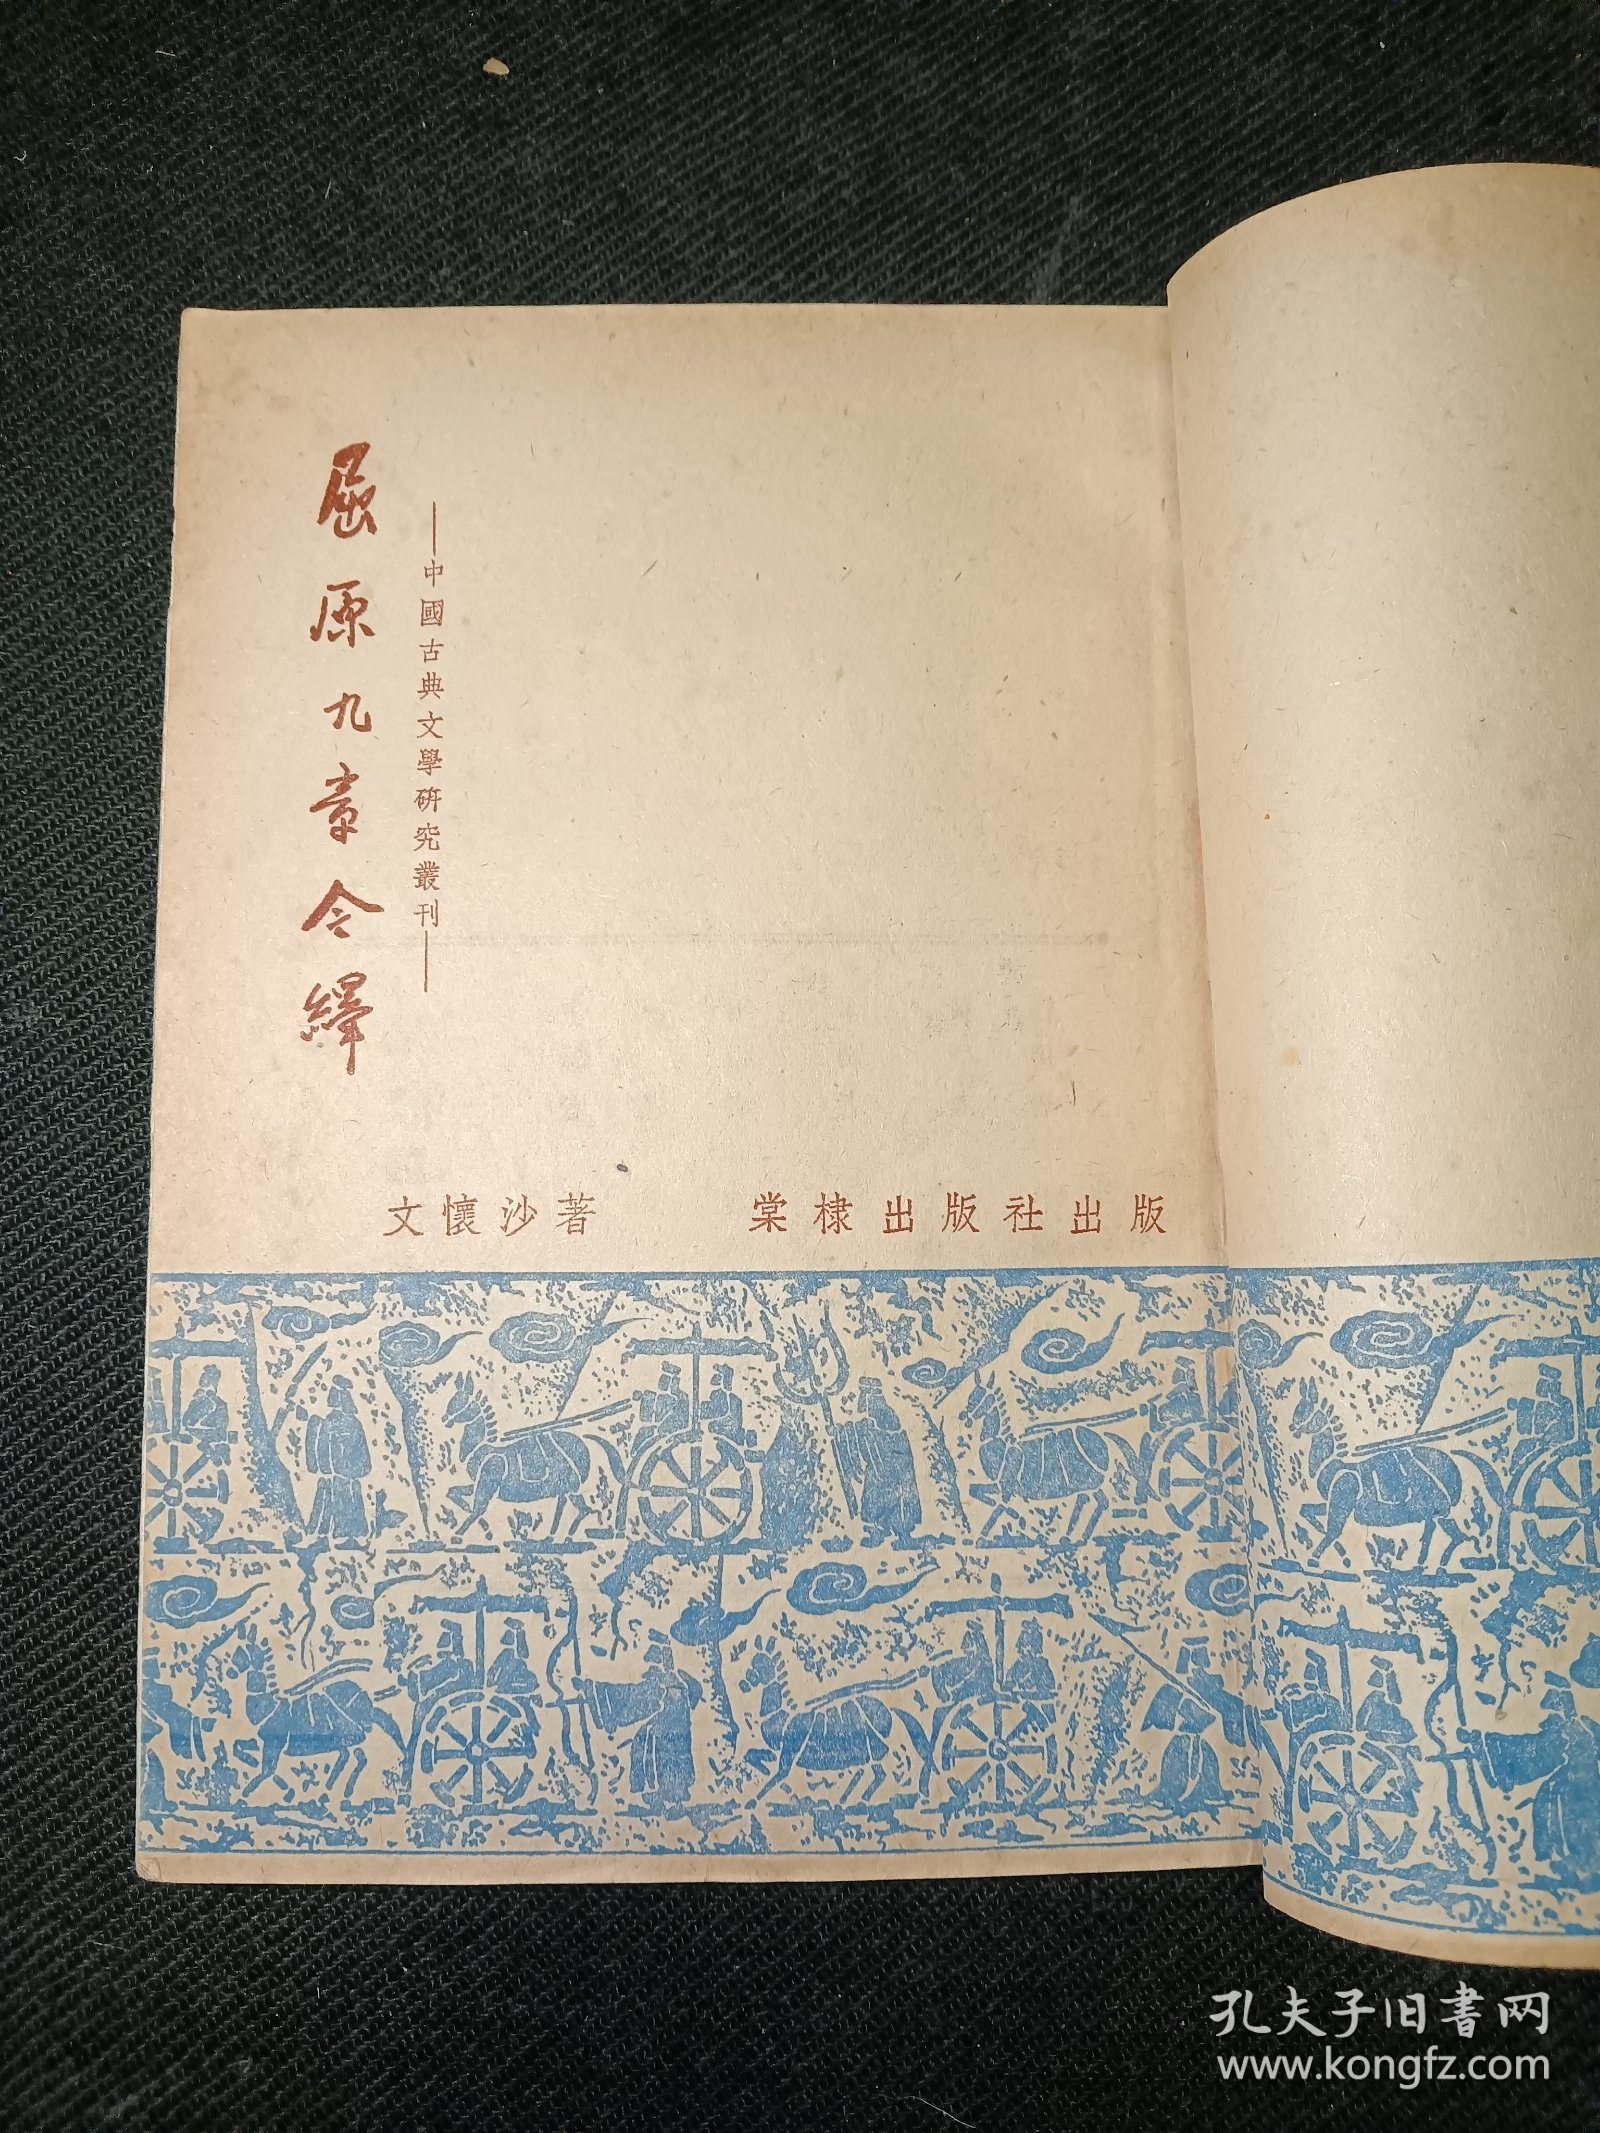 屈原九章今繹
——中國古典文學研究叢刊——
文懷沙著
棠棣出版社出版
孔夫子旧書网
www.kongfz.com